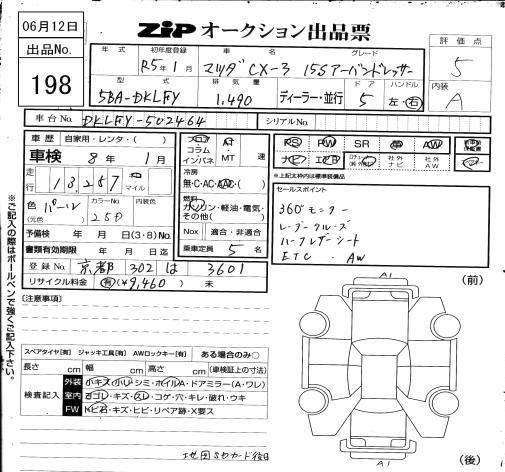 06月12日
出品No.
198
ZiP オークション出品票
評価点
5
内装
A
年式 初年度登録 車名 グレード
R5年1月 マツダ CX-3 15Sアーバンドレッサー
型式 排気量 ドア ハンドル
5BA-DKLFY 1,490 ディーラー・並行 5 左・右
車台No. DKLFY-502464 シリアルNo.
車歴 自家用・レンタ・( )
車検 8年 1月
走行 13,257 km マイル
色 (元色) パール カラーNo. 25D 内装色
予備検 年 月 日(3・8)No.
書類有効期限 年 月 日迄
登録No. 京都 302 は 3601
リサイクル料金 有(¥9,460) 未
フロア コラム インパネ AT MT 速
冷房 無・C・AC・AAC( )
燃料 ガソリン・軽油・電気・その他( )
Nox 適合・非適合
乗車定員 5 名
PS PW SR AW
ナビ 社外ナビ 社外AW
※上記太枠内は標準装備品
セールスポイント
360°モニター
レーダークルーズ
ハーフレザーシート
ETC . AW
※ご記入の際はボールペンで強くご記入下さい。
[注意事項]
スペアタイヤ[有] ジャッキ工具[有] AWロックキー[有] ある場合のみ○
長さ cm 幅 cm 高さ cm (車検証上の寸法)
検査記入
外装 小キズ・小ヘコ・シミ・ホイルA・ドアミラー(A・ワレ)
室内 ヨゴレ・キズ・スレ・コゲ・穴・キレ・破れ・ウキ
FW トビ石・キズ・ヒビ・リペア跡・X要ス
地図SDカード後日
(前)
A1
A1
(後)